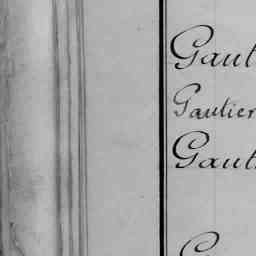 Gaut
Gautier
Gaut
G